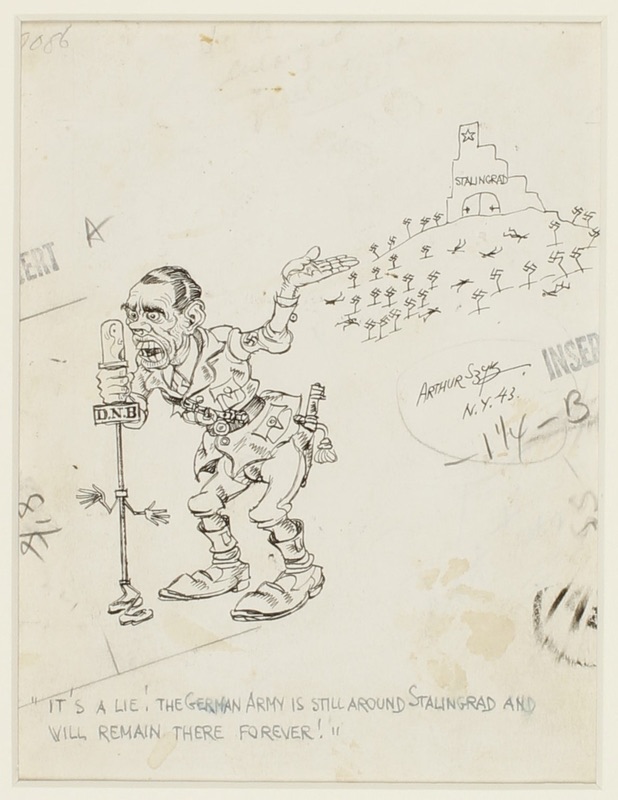 A
STALINGRAD
D.N.B
ARTHUR Szyk
N.Y. 43.
INSER
1 1/4 - B
"IT'S A LIE! THE GERMAN ARMY IS STILL AROUND STALINGRAD AND
WILL REMAIN THERE FOREVER!"